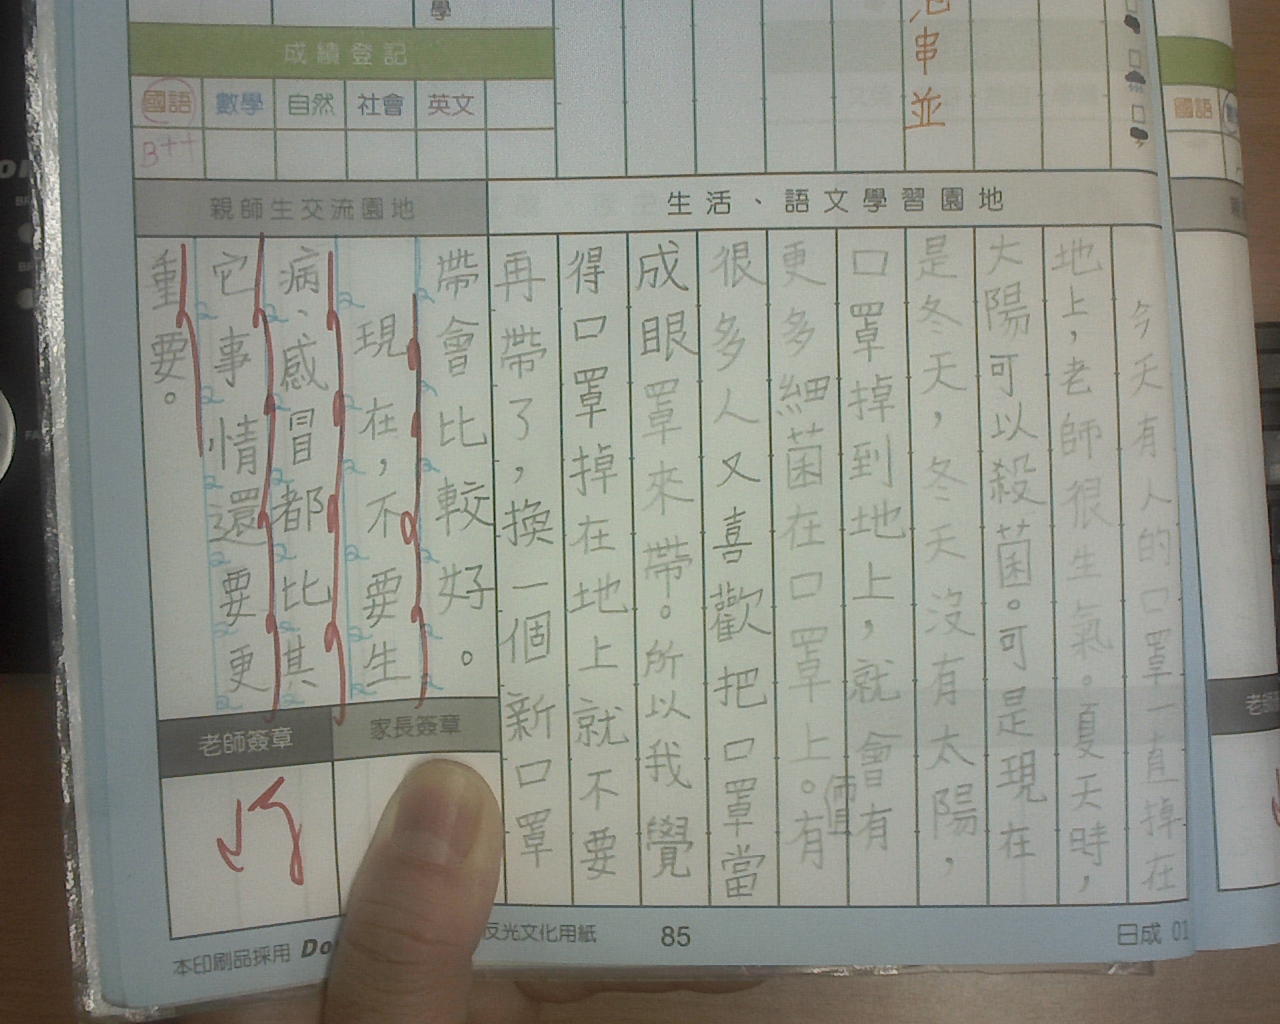 學
成績登記
國語 數學 自然 社會 英文
B++
串並
國語
親師生交流園地
生活、語文學習園地
今天有人的口罩一直掉在
地上，老師很生氣。夏天時，
大陽可以殺菌。可是現在
是冬天，冬天沒有太陽，
口罩掉到地上，就會有
更多細菌在口罩上。有
很多人又喜歡把口罩當
成眼罩來帶。所以我覺
得口罩掉在地上就不要
再帶了，換一個新口罩
帶會比較好。
現在，不要生
病、感冒都比其
它事情還要更
重要。
老師簽章
家長簽章
本印刷品採用
反光文化用紙
85
日成 01